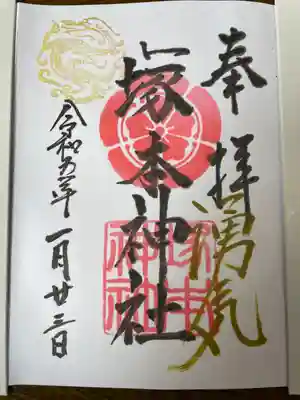 奉拝
湧気
塚本神社
塚本
神社
令和五年 一月廿三日